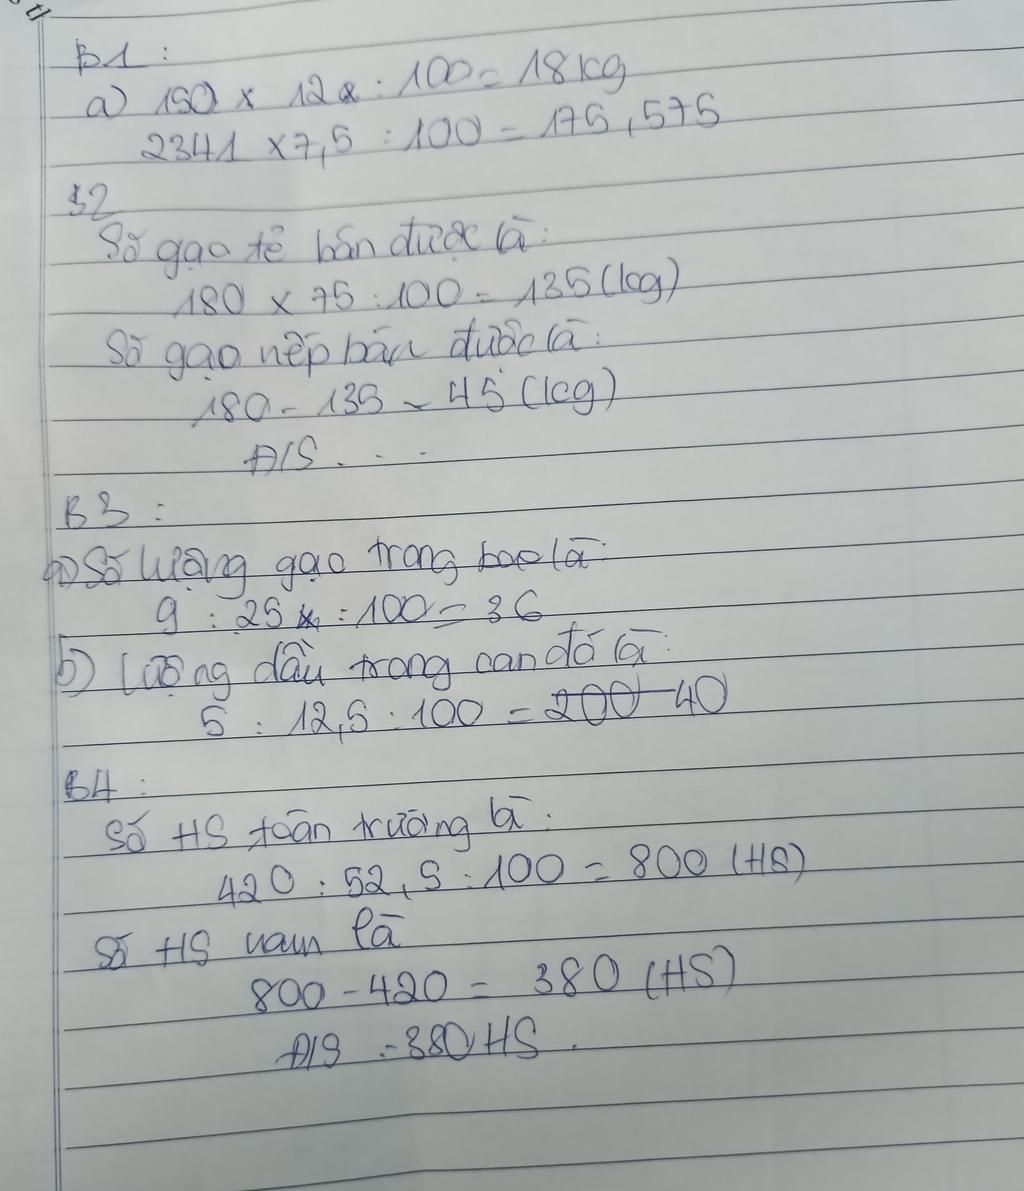 B1 :
a) 150 x 12 : 100 = 18 kg
2341 x 7,5 : 100 = 175,575
B2
Số gạo tẻ bán được là :
180 x 75 : 100 = 135 (kg)
Số gạo nếp bán được là :
180 - 135 = 45 (kg)
Đ/S . . .
B3 :
a) Số lượng gạo trong bao là :
9 : 25 : 100 = 36
b) Lượng dầu trong can đó là :
5 : 12,5 . 100 = 200 40
B4 :
Số HS toàn trường là :
420 : 52,5 . 100 = 800 (HS)
Số HS nam là
800 - 420 = 380 (HS)
Đ/S : 380 HS .